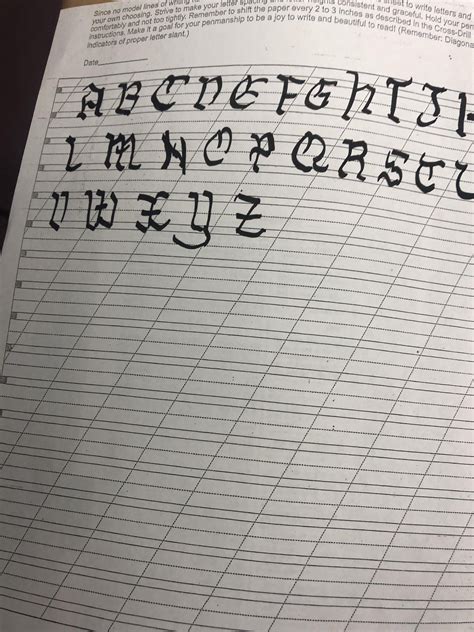 Since no model lines of writing
sheet to write letters and
your own choosing. Strive to make your letter spacing and letter heights consistent and graceful. Hold your pen
comfortably and not too tightly. Remember to shift the paper every 2 to 3 inches as described in the Cross-Drill
instructions. Make it a goal for your penmanship to be a joy to write and beautiful to read! (Remember: Diagon
indicators of proper letter slant.)
Date
A B C D E F G h I J K
L M N O P Q R S T U
V W X Y Z